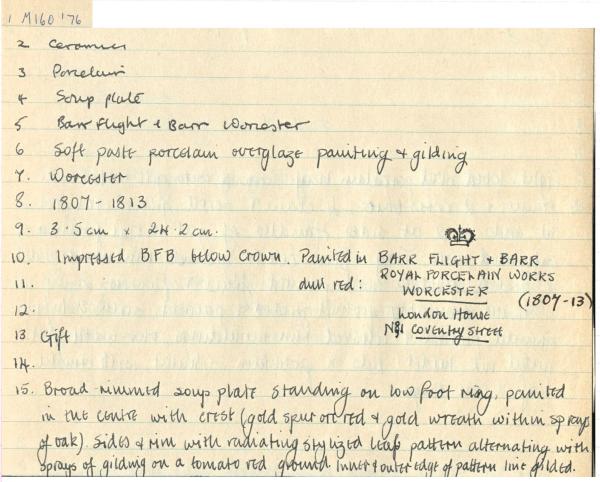 1 M160 '76
2 Ceramics
3 Porcelain
4 Soup plate
5 Barr Flight & Barr Worcester
6 Soft paste porcelain overglaze painting & gilding
7. Worcester
8. 1807 - 1813
9. 3.5cm x 24.2cm.
10. Impressed BFB below Crown. Painted in BARR FLIGHT & BARR
ROYAL PORCELAIN WORKS
11. dull red: WORCESTER
(1807-13)
12. London House
13 Gift No 1 COVENTRY STREET
14.
15. Broad rimmed soup plate standing on low foot ring, painted
in the centre with crest (gold spur on red & gold wreath within sprays
of oak). Sides & rim with radiating stylized leaf pattern alternating with
sprays of gilding on a tomato red ground. Inner & outer edge of pattern line gilded.